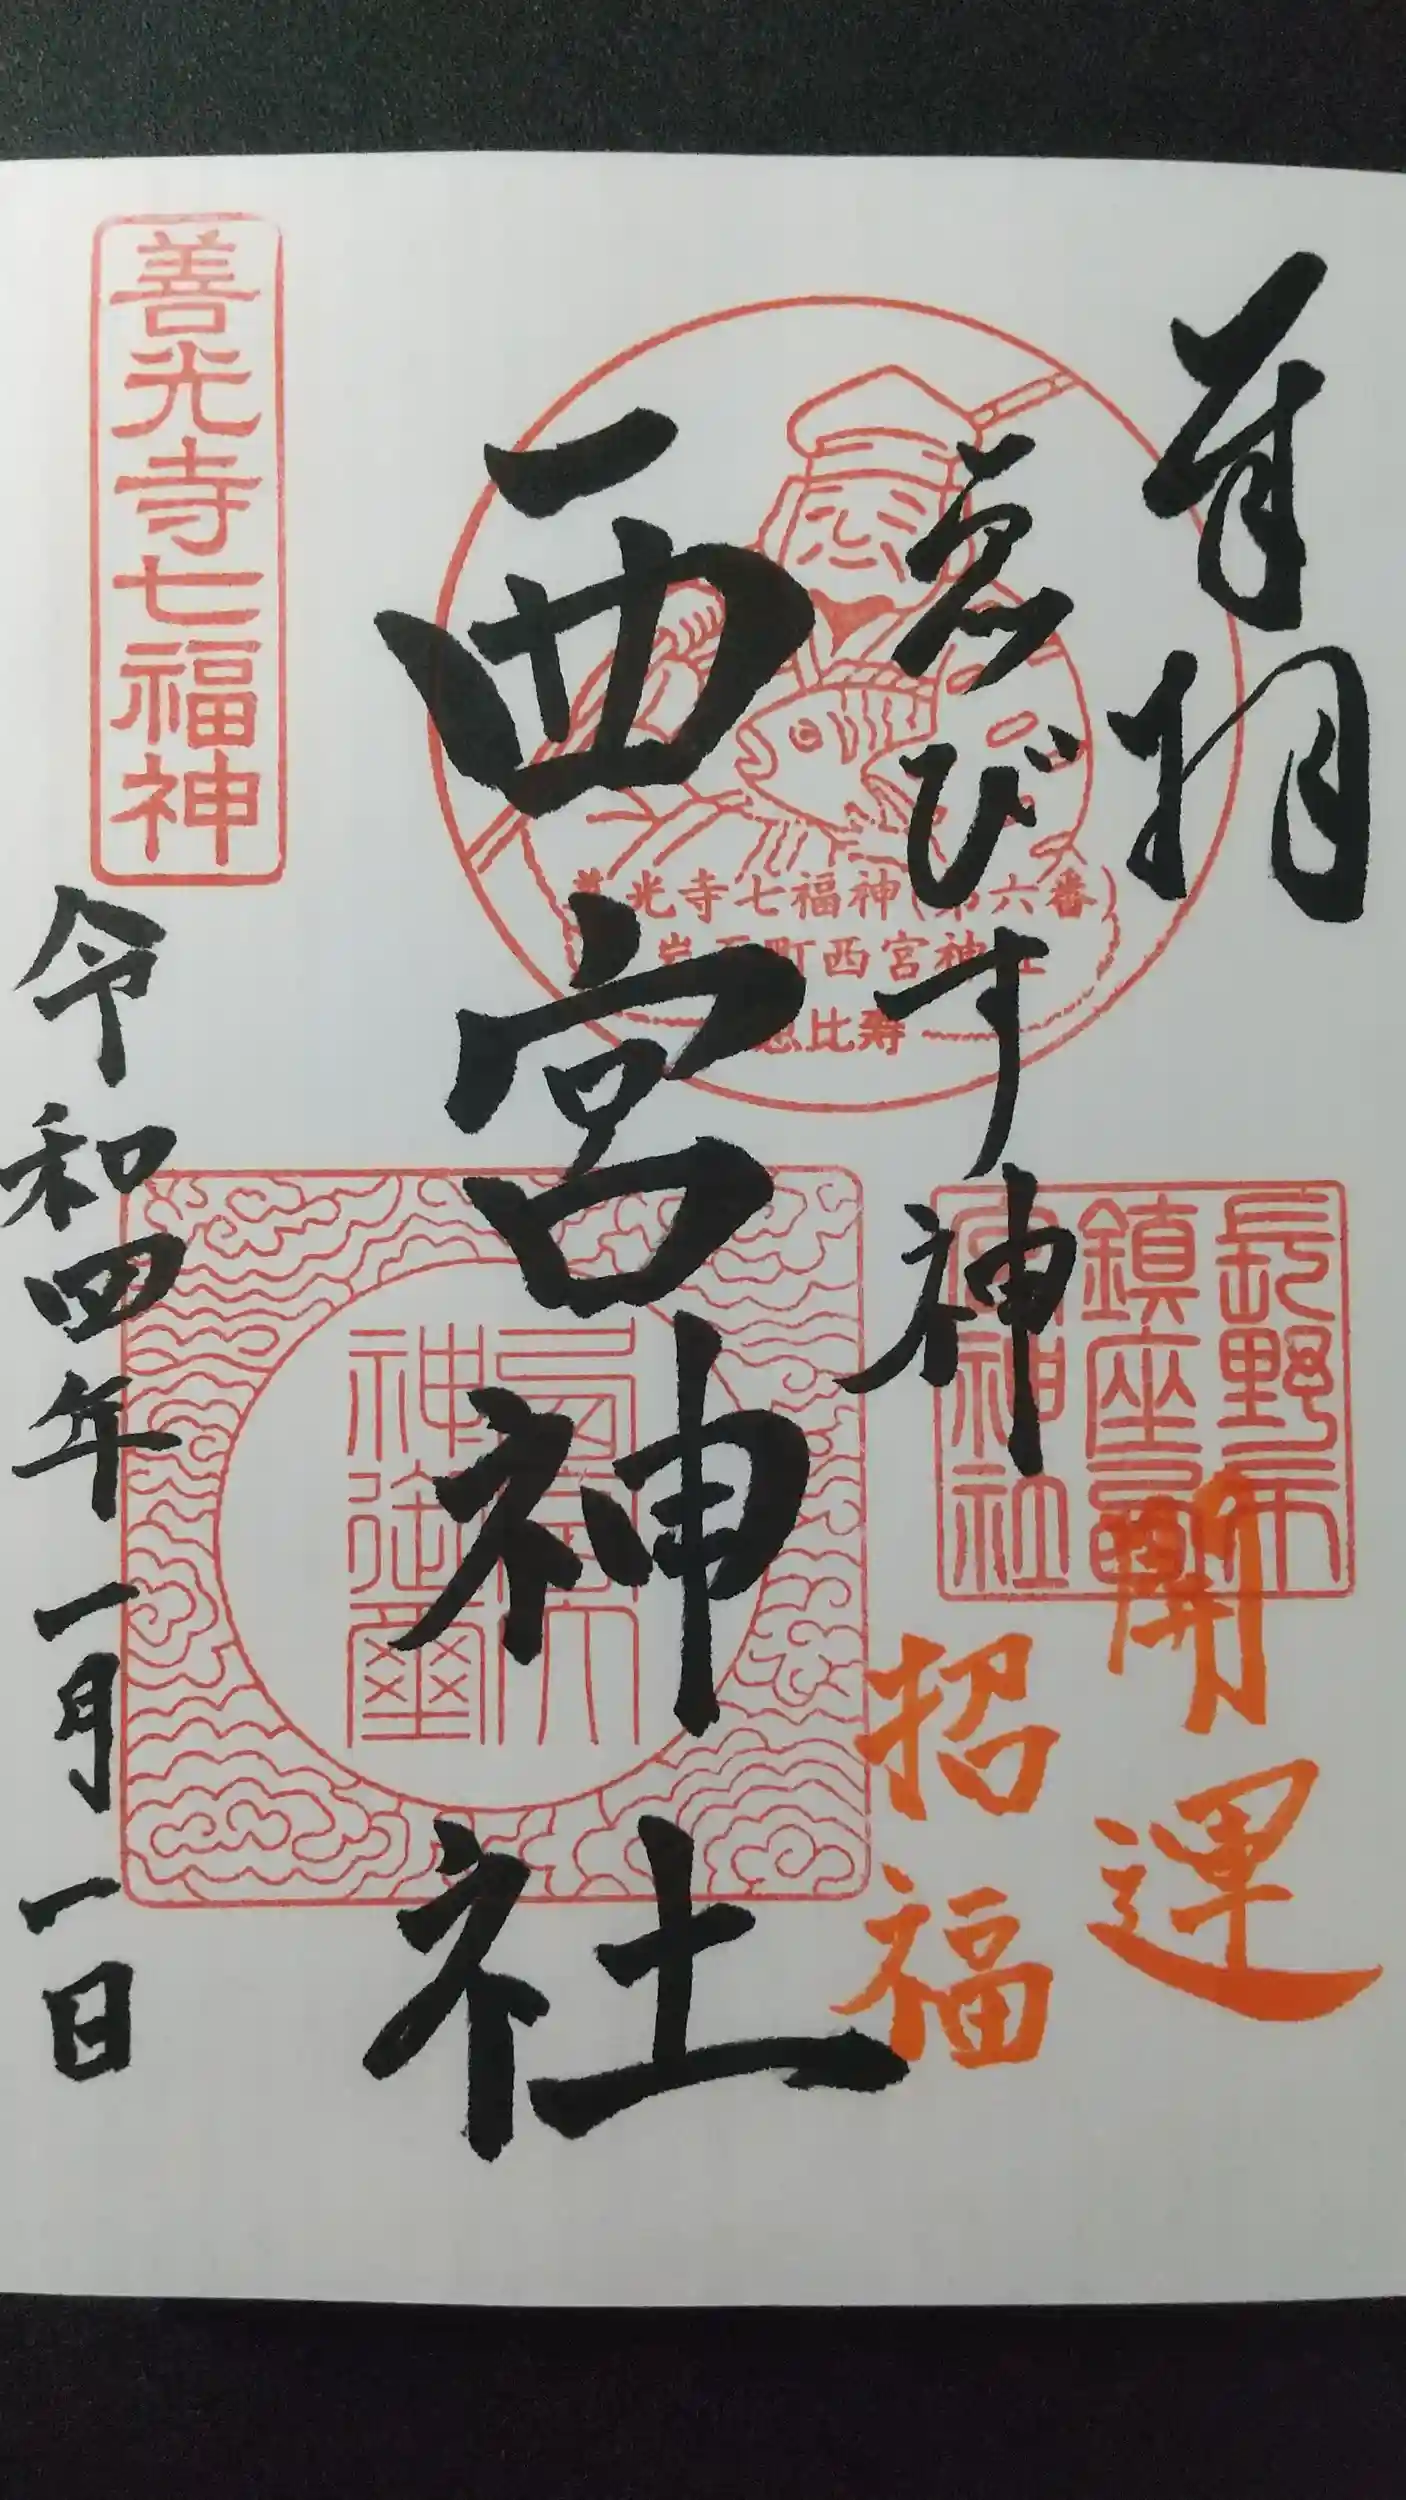 奉拝
開運
ゑびす神
招福
長野市
鎮座西
宮神社
善光寺七福神(第六番)
岩石町西宮神社
恵比寿
西宮神社
神御璽
善光寺七福神
令和四年一月一日